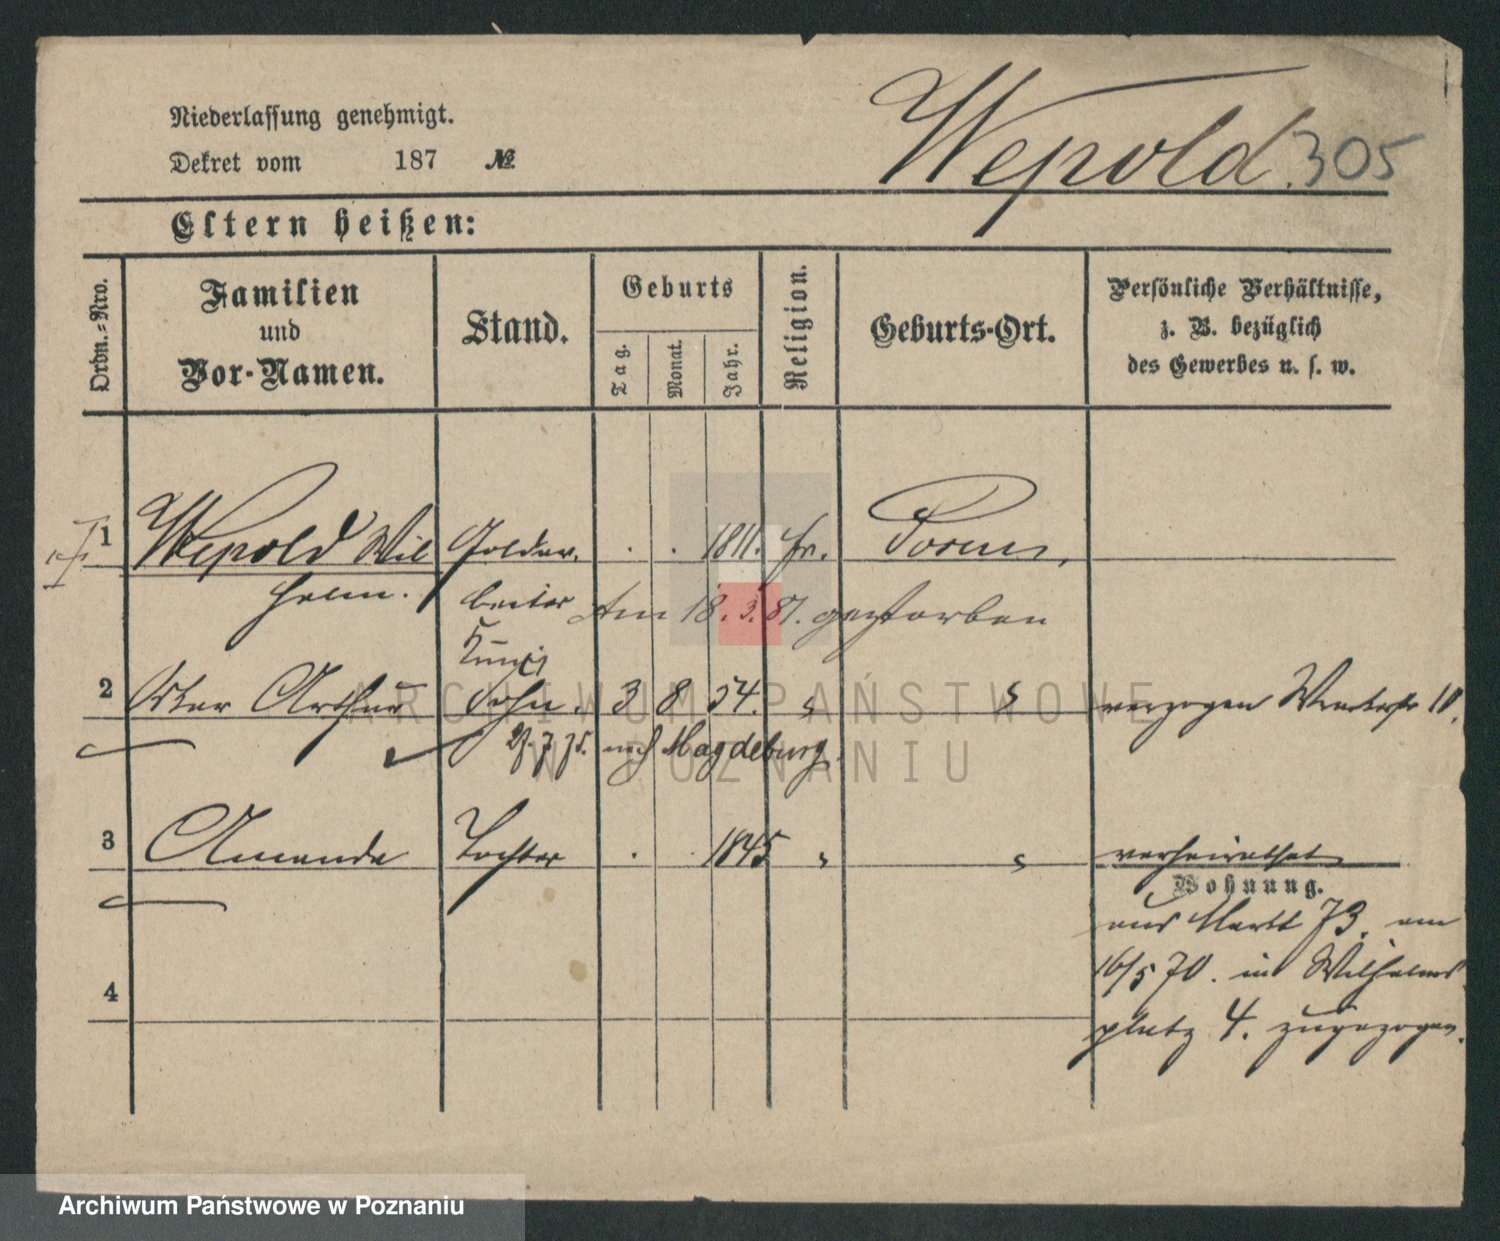 Niederlassung genehmigt.
Dekret vom 187 №
Wepold 305
Eltern heißen:
Ordn.-Nro.
Familien
und
Vor-Namen.
Stand.
Geburts
Tag.
Monat.
Jahr.
Religion.
Geburts-Ort.
Persönliche Verhältnisse,
z. B. bezüglich
des Gewerbes u. s. w.
1 Wepold Wil
helm.
1811.
Posen
Am 18.3.81. gestorben
2 Arthur Sohn. 3 8 54. verzogen
nach Magdeburg.
3 Amanda Tochter 1845 verheirathet
Wohnung.
aus Markt 73. am
16/5 70. in Wilhelms
platz 4. zugezogen.
4
ARCHIWUM PAŃSTWOWE
W POZNANIU
Archiwum Państwowe w Poznaniu